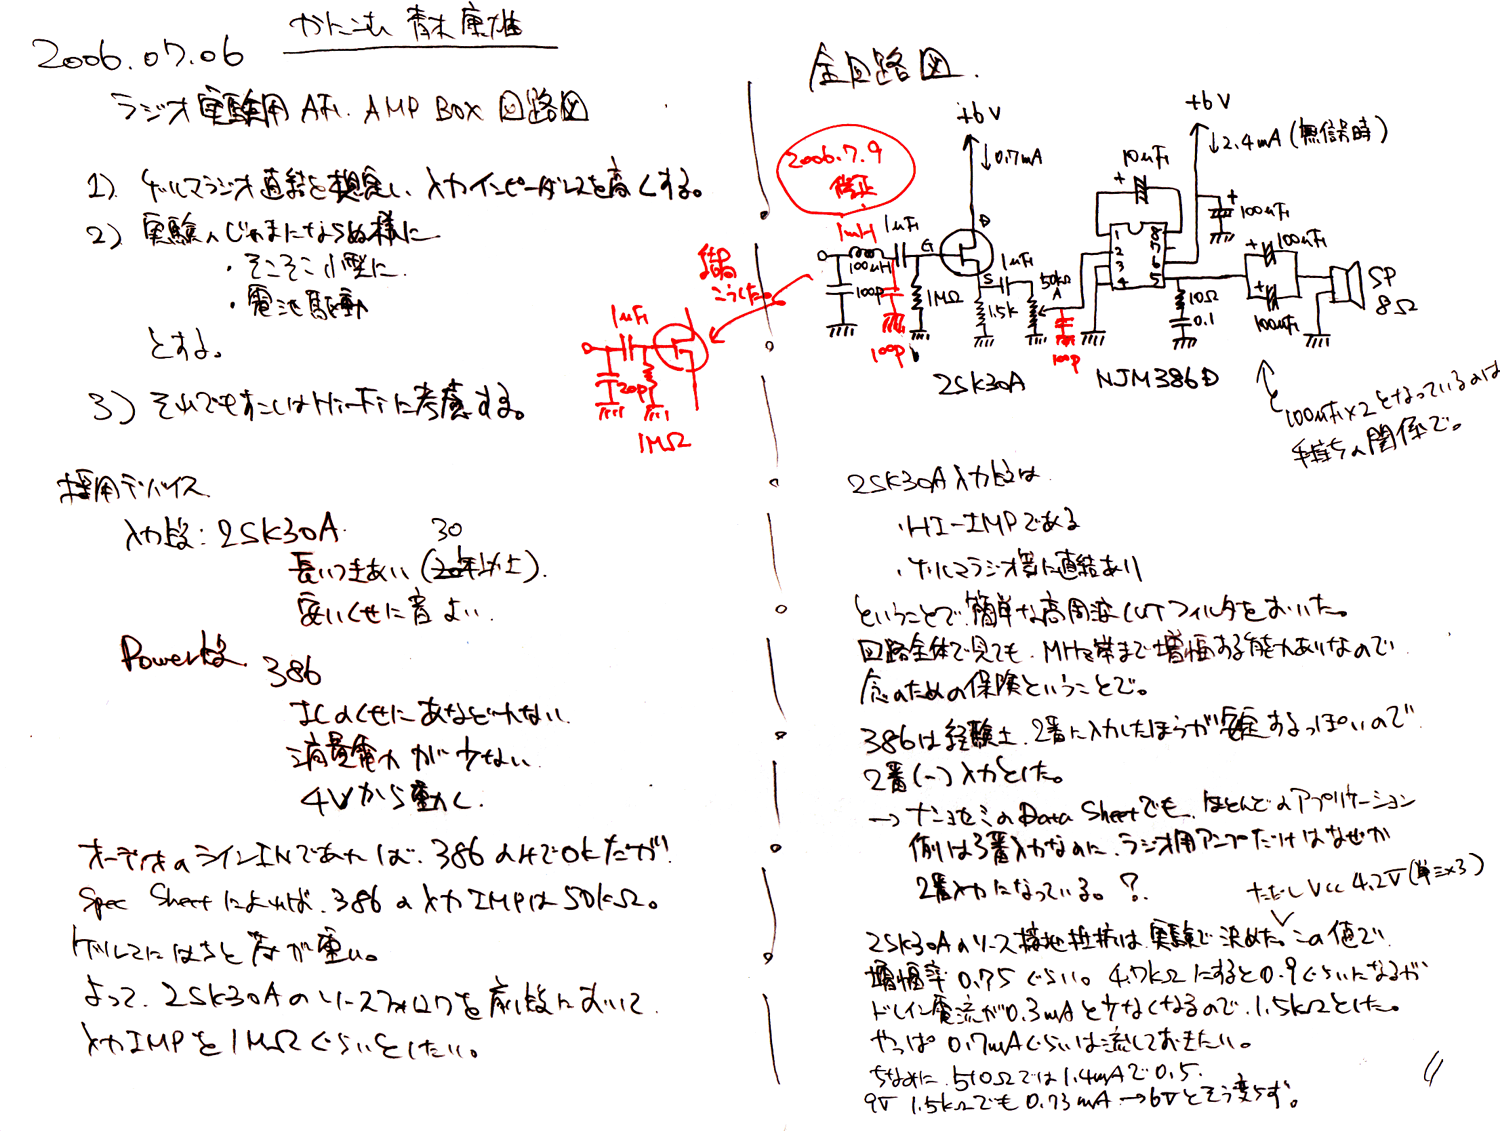 2006.07.06
かんこむ 青木 康雄
ラジオ実験用 AF. AMP BOX 回路図
1) ゲルマラジオ直結を想定し、入力インピーダンスを高くする。
2) 実験のじゃまにならぬ様に
・そこそこ小型に
・電池駆動
とする。
3) それでもすこしはHi-Fiに考慮する。
採用デバイス
入力段：2SK30A.
長いつきあい (20年以上).
30
安いくせに音よい.
Power段.
386
ICのくせにあなどれない.
消費電力が少ない.
4Vから動く.
オーディオのラインINであれば、386のみでOKだが
Spec Sheetによれば、386の入力IMPは50kΩ。
ゲルマにはちと荷が重い。
よって、2SK30Aのソースフォロワを前段において
入力IMPを1MΩぐらいとしたい。
1μF
20p
1MΩ
結局
こうした。
全回路図.
2006.7.9
修正
+6V
↓0.7mA
+6V
↓2.4mA (無信号時)
10μF
+
+
100μF
1mH
100μH
1μF
G
D
S
1μF
50kΩ
A
100p
100p
1MΩ
1.5k
100p
1
2
3
4
8
7
6
5
10Ω
0.1
+
100μF
+
100μF
SP
8Ω
2SK30A
NJM386D
100μF×2となっているのは
手持ちの関係で。
2SK30A入力段は
・HI-IMPである
・ゲルマラジオ等に直結あり
ということで、簡単な高周波CUTフィルタをおいた。
回路全体で見ても、MHz帯まで増幅する能力ありなので
念のための保険ということで。
386は経験上、2番に入力したほうが安定するっぽいので
2番(-)入力とした。
→ナショセミのData Sheetでも、ほとんどのアプリケーション
例は3番入力なのに、ラジオ用アンプだけはなぜか
2番入力になっている。？
ただしVcc 4.2V (単三×3)
2SK30Aのソース接地抵抗は実験で決めた。この値で
増幅率0.75ぐらい。4.7kΩにすると0.9ぐらいになるが
ドレイン電流が0.3mAと少なくなるので、1.5kΩとした。
やっぱ0.7mAぐらいは流しておきたい。
ちなみに、510Ωでは1.4mAで0.5.
9V 1.5kΩでも0.73mA→6Vとそう変らず。